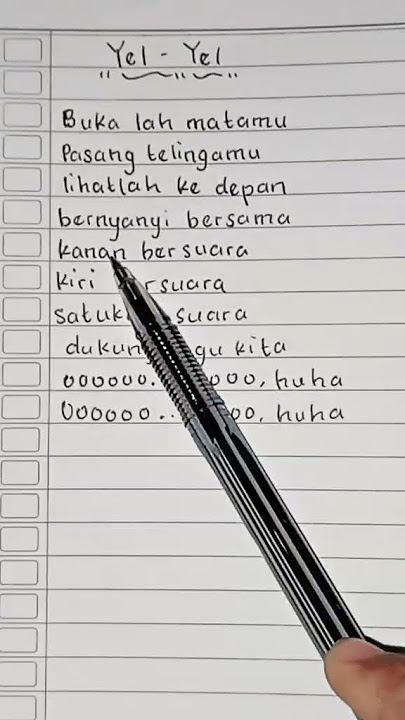 Yel - Yel
Buka lah matamu
Pasang telingamu
lihatlah ke depan
bernyanyi bersama
kanan bersuara
kiri suara
suara
kita
oooooo. ooo, huha
oooooo.. oo, huha